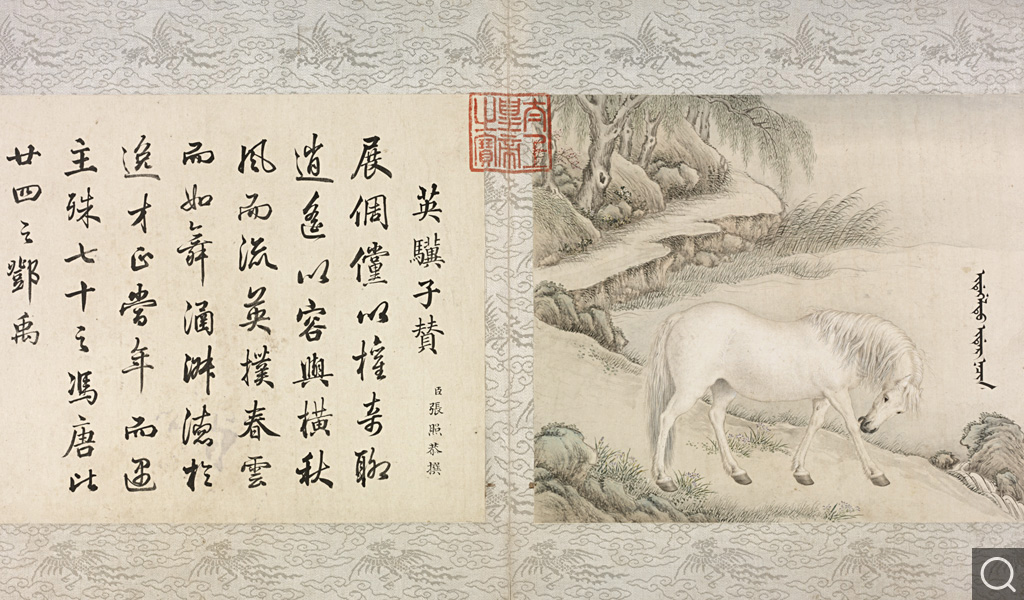 英驥子贊
臣張照恭撰
展倜儻以權奇聊
逍遙以容與橫秋
風而流英撲春雲
而如舞涵淵德於
逸才正當年而遇
主殊七十之馮唐比
廿四之鄧禹
太上
皇帝
之寶